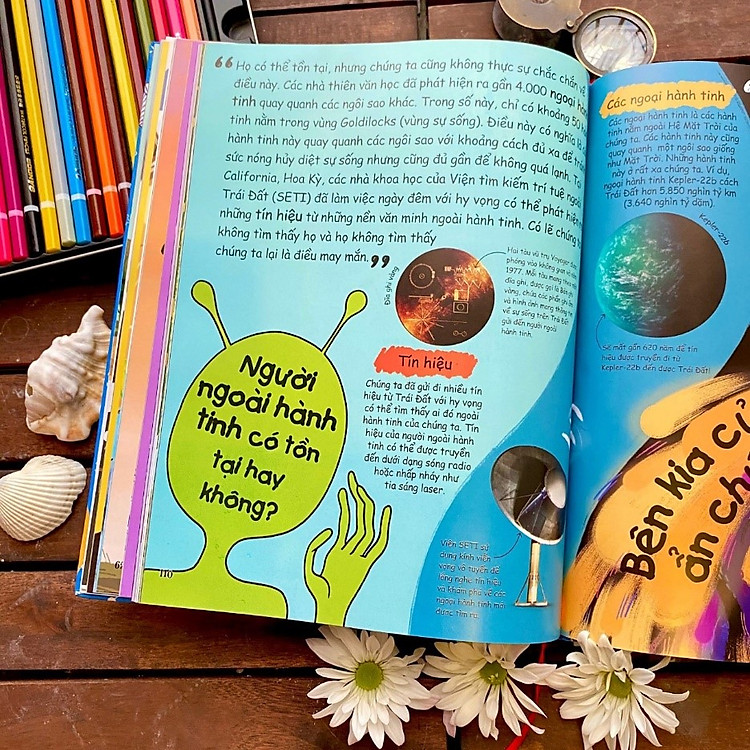 “ Họ có thể tồn tại, nhưng chúng ta cũng không thực sự chắc chắn về
điều này. Các nhà thiên văn học đã phát hiện ra gần 4.000 ngoại hành
tinh quay quanh các ngôi sao khác. Trong số này, chỉ có khoảng 50
tinh nằm trong vùng Goldilocks (vùng sự sống). Điều này có nghĩa là
hành tinh này quay quanh các ngôi sao với khoảng cách đủ xa để
sức nóng hủy diệt sự sống nhưng cũng đủ gần để không quá lạnh. Tại
California, Hoa Kỳ, các nhà khoa học của Viện tìm kiếm trí tuệ ngoài
Trái Đất (SETI) đã làm việc ngày đêm với hy vọng có thể phát hiện
những tín hiệu từ những nền văn minh ngoài hành tinh. Có lẽ chúng
không tìm thấy họ và họ không tìm thấy
chúng ta lại là điều may mắn. ”
Đĩa ghi vàng
Hai tàu vũ trụ Voyager được
phóng vào không gian
1977. Mỗi tàu mang theo
đĩa ghi, được gọi là
vàng, chứa các phần ghi âm
và hình ảnh mang thông
về sự sống trên Trái Đất
gửi đến người ngoài
hành tinh.
Tín hiệu
Chúng ta đã gửi đi nhiều tín
hiệu từ Trái Đất với hy vọng
có thể tìm thấy ai đó ngoài
hành tinh của chúng ta. Tín
hiệu của người ngoài hành
tinh có thể được truyền
đến dưới dạng sóng radio
hoặc nhấp nháy như
tia sáng laser.
Người
ngoài hành
tinh có tồn
tại hay
không?
Viện SETI sử
dụng kính viễn
vọng vô tuyến để
lắng nghe tín hiệu
và khám phá về các
ngoại hành tinh mới
được tìm ra.
110
Các ngoại hành tinh
Các ngoại hành tinh là các hành
tinh nằm ngoài Hệ Mặt Trời của
chúng ta. Các hành tinh này cũng
quay quanh một ngôi sao giống
như Mặt Trời. Những hành tinh
này ở rất xa chúng ta. Ví dụ,
ngoại hành tinh Kepler-22b cách
Trái Đất hơn 5.850 nghìn tỷ km
(3.640 nghìn tỷ dặm).
Kepler-22b
Sẽ mất gần 620 năm để tín
hiệu được truyền đi từ
Kepler-22b đến được Trái Đất!
Bên kia
ẩn